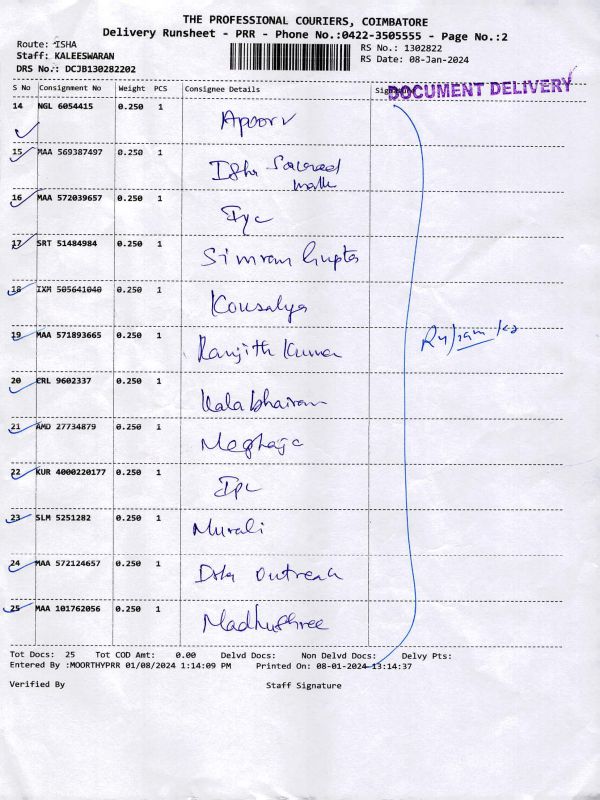 THE PROFESSIONAL COURIERS, COIMBATORE
Delivery Runsheet - PRR - Phone No.:0422-3505555 - Page No.:2
Route: ISHA
Staff: KALEESWARAN
DRS No.: DCJB130282202
RS No.: 1302822
RS Date: 08-Jan-2024
DOCUMENT DELIVERY
S No Consignment No Weight PCS Consignee Details
14 NGL 6054415 0.250 1 Apoorv
15 MAA 569387497 0.250 1
16 MAA 572039657 0.250 1 Iyc
17 SRT 51484984 0.250 1 Simran Gupta
18 IXM 505641040 0.250 1 Kousalya
19 MAA 571893665 0.250 1 Ranjith Kumar
20 CRL 9602337 0.250 1 Kalabhairam
21 AMD 27734879 0.250 1
22 KUR 4000220177 0.250 1
23 SLM 5251282 0.250 1 Murali
24 MAA 572124657 0.250 1 Outreach
25 MAA 101762056 0.250 1 Madhushree
Tot Docs: 25 Tot COD Amt: 0.00 Delvd Docs: Non Delvd Docs: Delvy Pts:
Entered By :MOORTHYPRR 01/08/2024 1:14:09 PM Printed On: 08-01-2024 13:14:37
Verified By Staff Signature